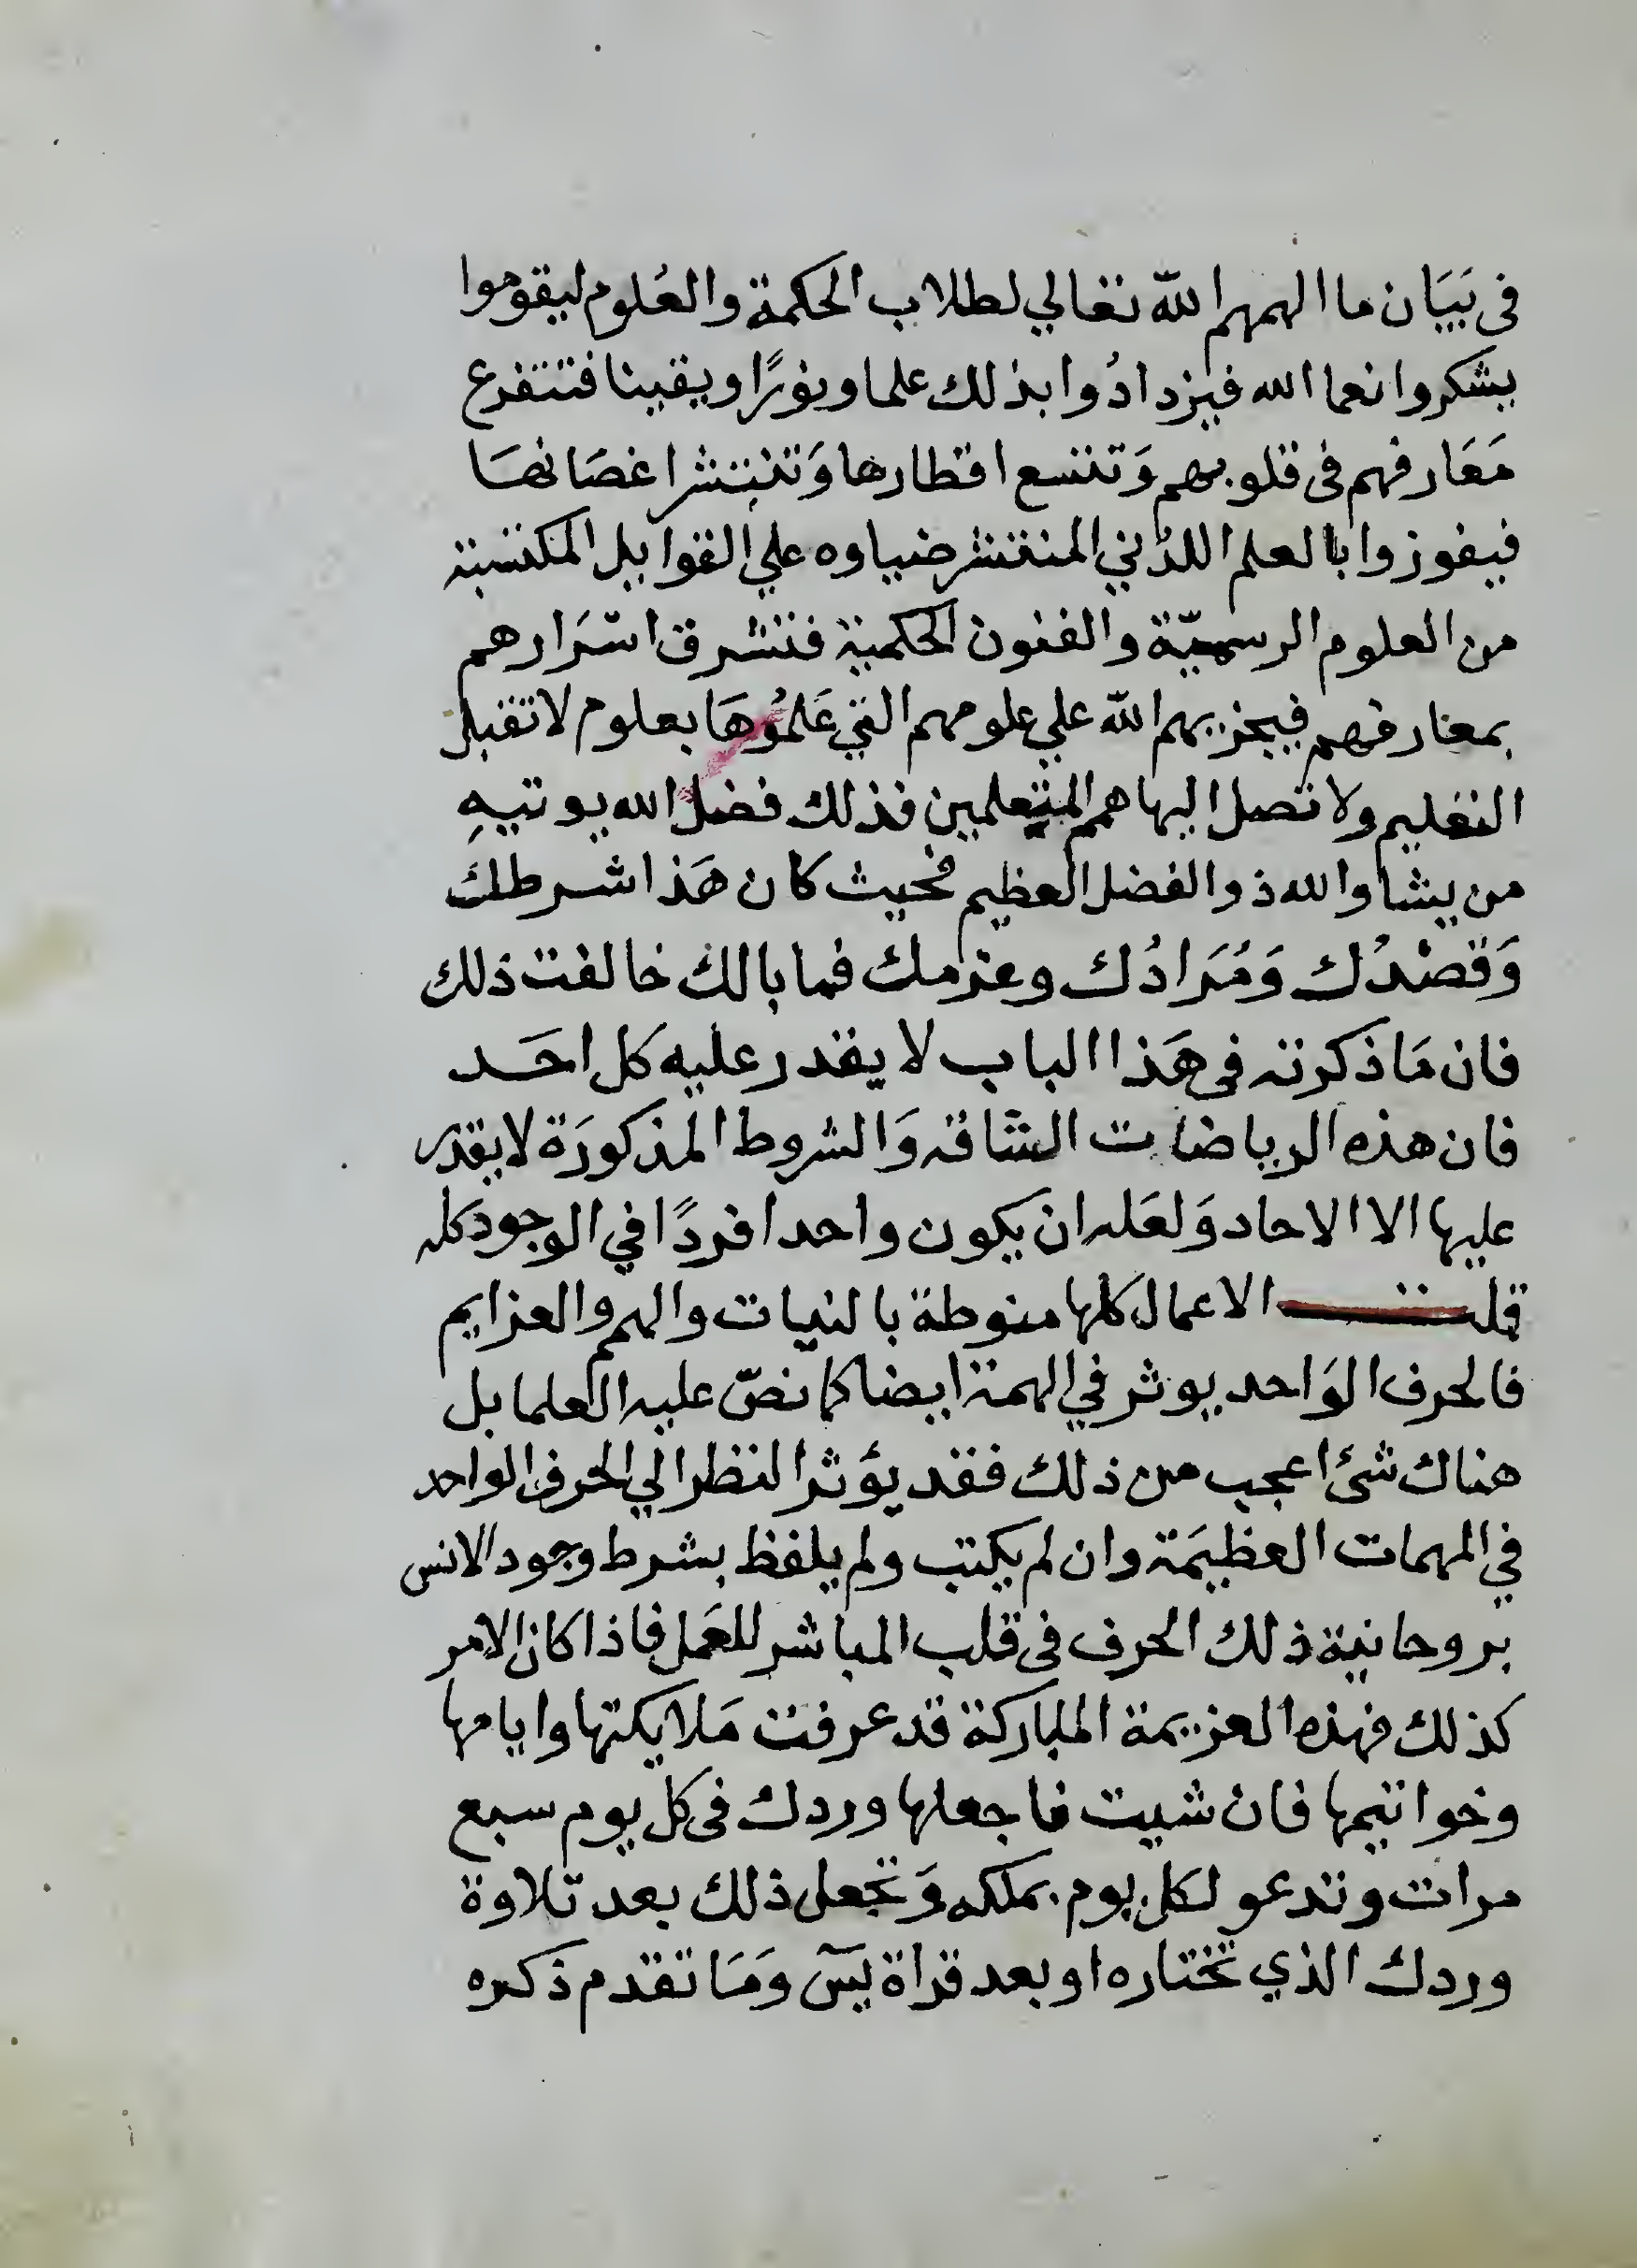 في بَيَان ما الهمهم الله تعالي لطلاب الحكمة والعُلوم ليقوموا
بشكروا نعما الله فيزدادُوا بذلك علما ونورًا ويقينا فتتفرع
مَعَارفهم فى قلوبهم وَتتسع اقطارها وَتنتشر اغصَانهَا
فيفوزوا بالعلم اللدُني المنتشر ضياوه علي القوابل المكتسبة
من العلوم الرسميّة والفنون الحكمية فتشرق اسَرَارهم
بمعارفهم فيجزيهم الله علي علومهم التي عَلمُوهَا بعلوم لا تقبل
التعليم ولا تصل اليها همم المتعلمين فذلك فضل الله يوتيهِ
من يشا والله ذو الفضل العظيم فحيث كان هَذا شرطكَ
وَقصْدُك وَمُرَادُك وعزمك فما بالك خالفت ذلك
فان مَا ذكرته فى هَذا الباب لا يقدر عليه كل احَد
فان هذه الرياضات الشاقه وَالشروط المذكورَة لا يقدر
عليها الا الاحاد وَلعَله ان يكون واحدا فردًا في الوجود كله
قلت الاعمال كلها منوطة بالنيات والهمم والعزايم
فالحرف الوَاحد يوثر في الهمة ايضا كما نصّ عليه العلما بل
هناك شئ اعجب من ذلك فقد يؤثر النظر الي الحرف الواحد
في المهمات العظيمَة وان لم يكتب ولم يلفظ بشرط وجود الانس
بروحانية ذلك الحرف فى قلب المباشر للعَمل فاذا كان الامر
كذلك فهذه العزيمة المباركة قد عرفت مَلايكتها وايامها
وخواتيمها فان شيت فاجعلها وردك فى كل يوم سبع
مرات وتدعو لكل يوم بملكه وَتجعل ذلك بعد تلاوة
وردك الذي تختاره او بعد قراة يسۤ وَمَا تقدم ذكره